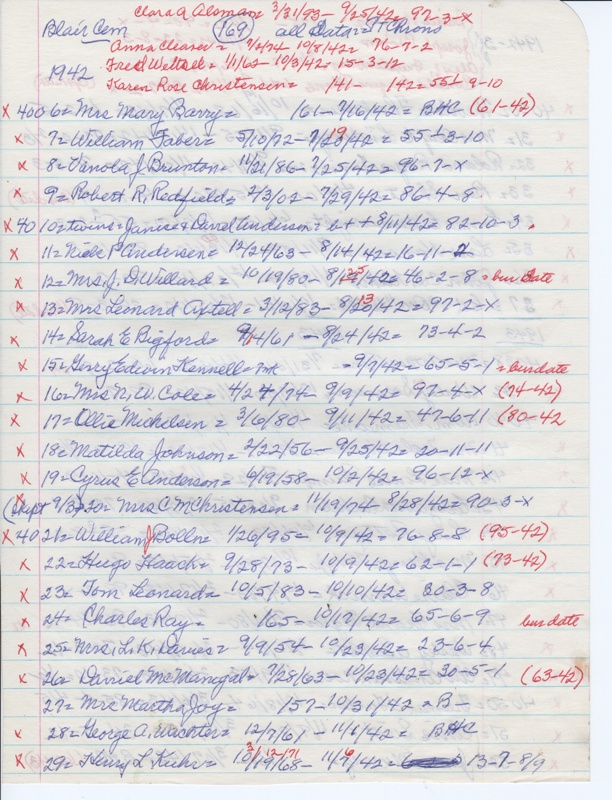 Clara A Alsman = 3/31/93 - 9/25/42 97-3-X
Blair Cem (169) all Data = T Chrons
Anna Cleaver = 7/2/74 10/8/42 = 76-7-2
1942 Fred Weltsell = 11/62 - 10/3/42 = 15-3-12
Karen Rose Christensen = 141 - 142 = 55½ 9-10
X 4006 = Mrs Mary Barry = 161 - 7/16/42 = BHC (61-42)
X 7 = William Faber = 5/10/72 - 7/20/42 = 55½-3-10
19
X 8 = Vanola J. Brunton = 11/21/86 - 7/25/42 = 96-7-X
X 9 = Robert R. Redfield = 2/3/02 - 7/29/42 = 86-4-8
X 4010 = twins = Janice & Darrel Anderson = b + + 8/11/42 = 82-10-3
X 11 = Niels P Andersen = 12/24/63 - 8/14/42 = 16-11-2
X 12 = Mrs. J. D. Willard = 10/19/80 - 8/ /42 = 46-2-8 = bur date
X 13 = Mrs Leonard Axtell = 3/12/83 - 8/20/42 = 97-2-X
13
X 14 = Sarah E Bigford = 9/4/61 - 8/24/42 = 73-4-2
X 15 = Gerry Edwin Kennell = = 9/7/42 = 65-5-1 = bur date
X 16 = Mrs N. W. Cole = 4/27/74 - 9/9/42 = 97-4-X (74-42)
X 17 = Ollie Michelsen = 3/6/80 - 9/11/42 = 47-6-11 (80-42
X 18 = Matilda Johnson = 2/22/56 - 9/25/42 = 20-11-11
X 19 = Cyrus E Anderson = 6/19/58 - 10/2/42 = 96-12-X
(Dupt 9/3) 20 = Mrs C M Christensen = 11/19/74 8/28/42 = 90-3-X
X 4021 = William J Bolln = 1/26/95 = 10/9/42 = 76-8-8 (95-42)
X 22 = Hugo Haack = 9/28/73 - 10/9/42 = 62-1-1 (73-42)
X 23 = Tom Leonard = 10/5/83 - 10/10/42 = 20-3-8
X 24 = Charles Ray = 165 - 10/17/42 = 65-6-9 bur date
X 25 = Mrs. L. K. Davies = 9/9/54 - 10/23/42 = 23-6-4
X 26 = Daniel McManigal = 7/28/63 - 10/23/42 = 30-5-1 (63-42)
27 = Mrs Martha Joy = 157 - 10/31/42 = B-
X 28 = George A. Wachter = 12/7/61 - 11/1/42 = BHC
3/12/71 6
X 29 = Henry L. Kuhr = 10/19/68 - 11/7/42 = 13-7-8/9